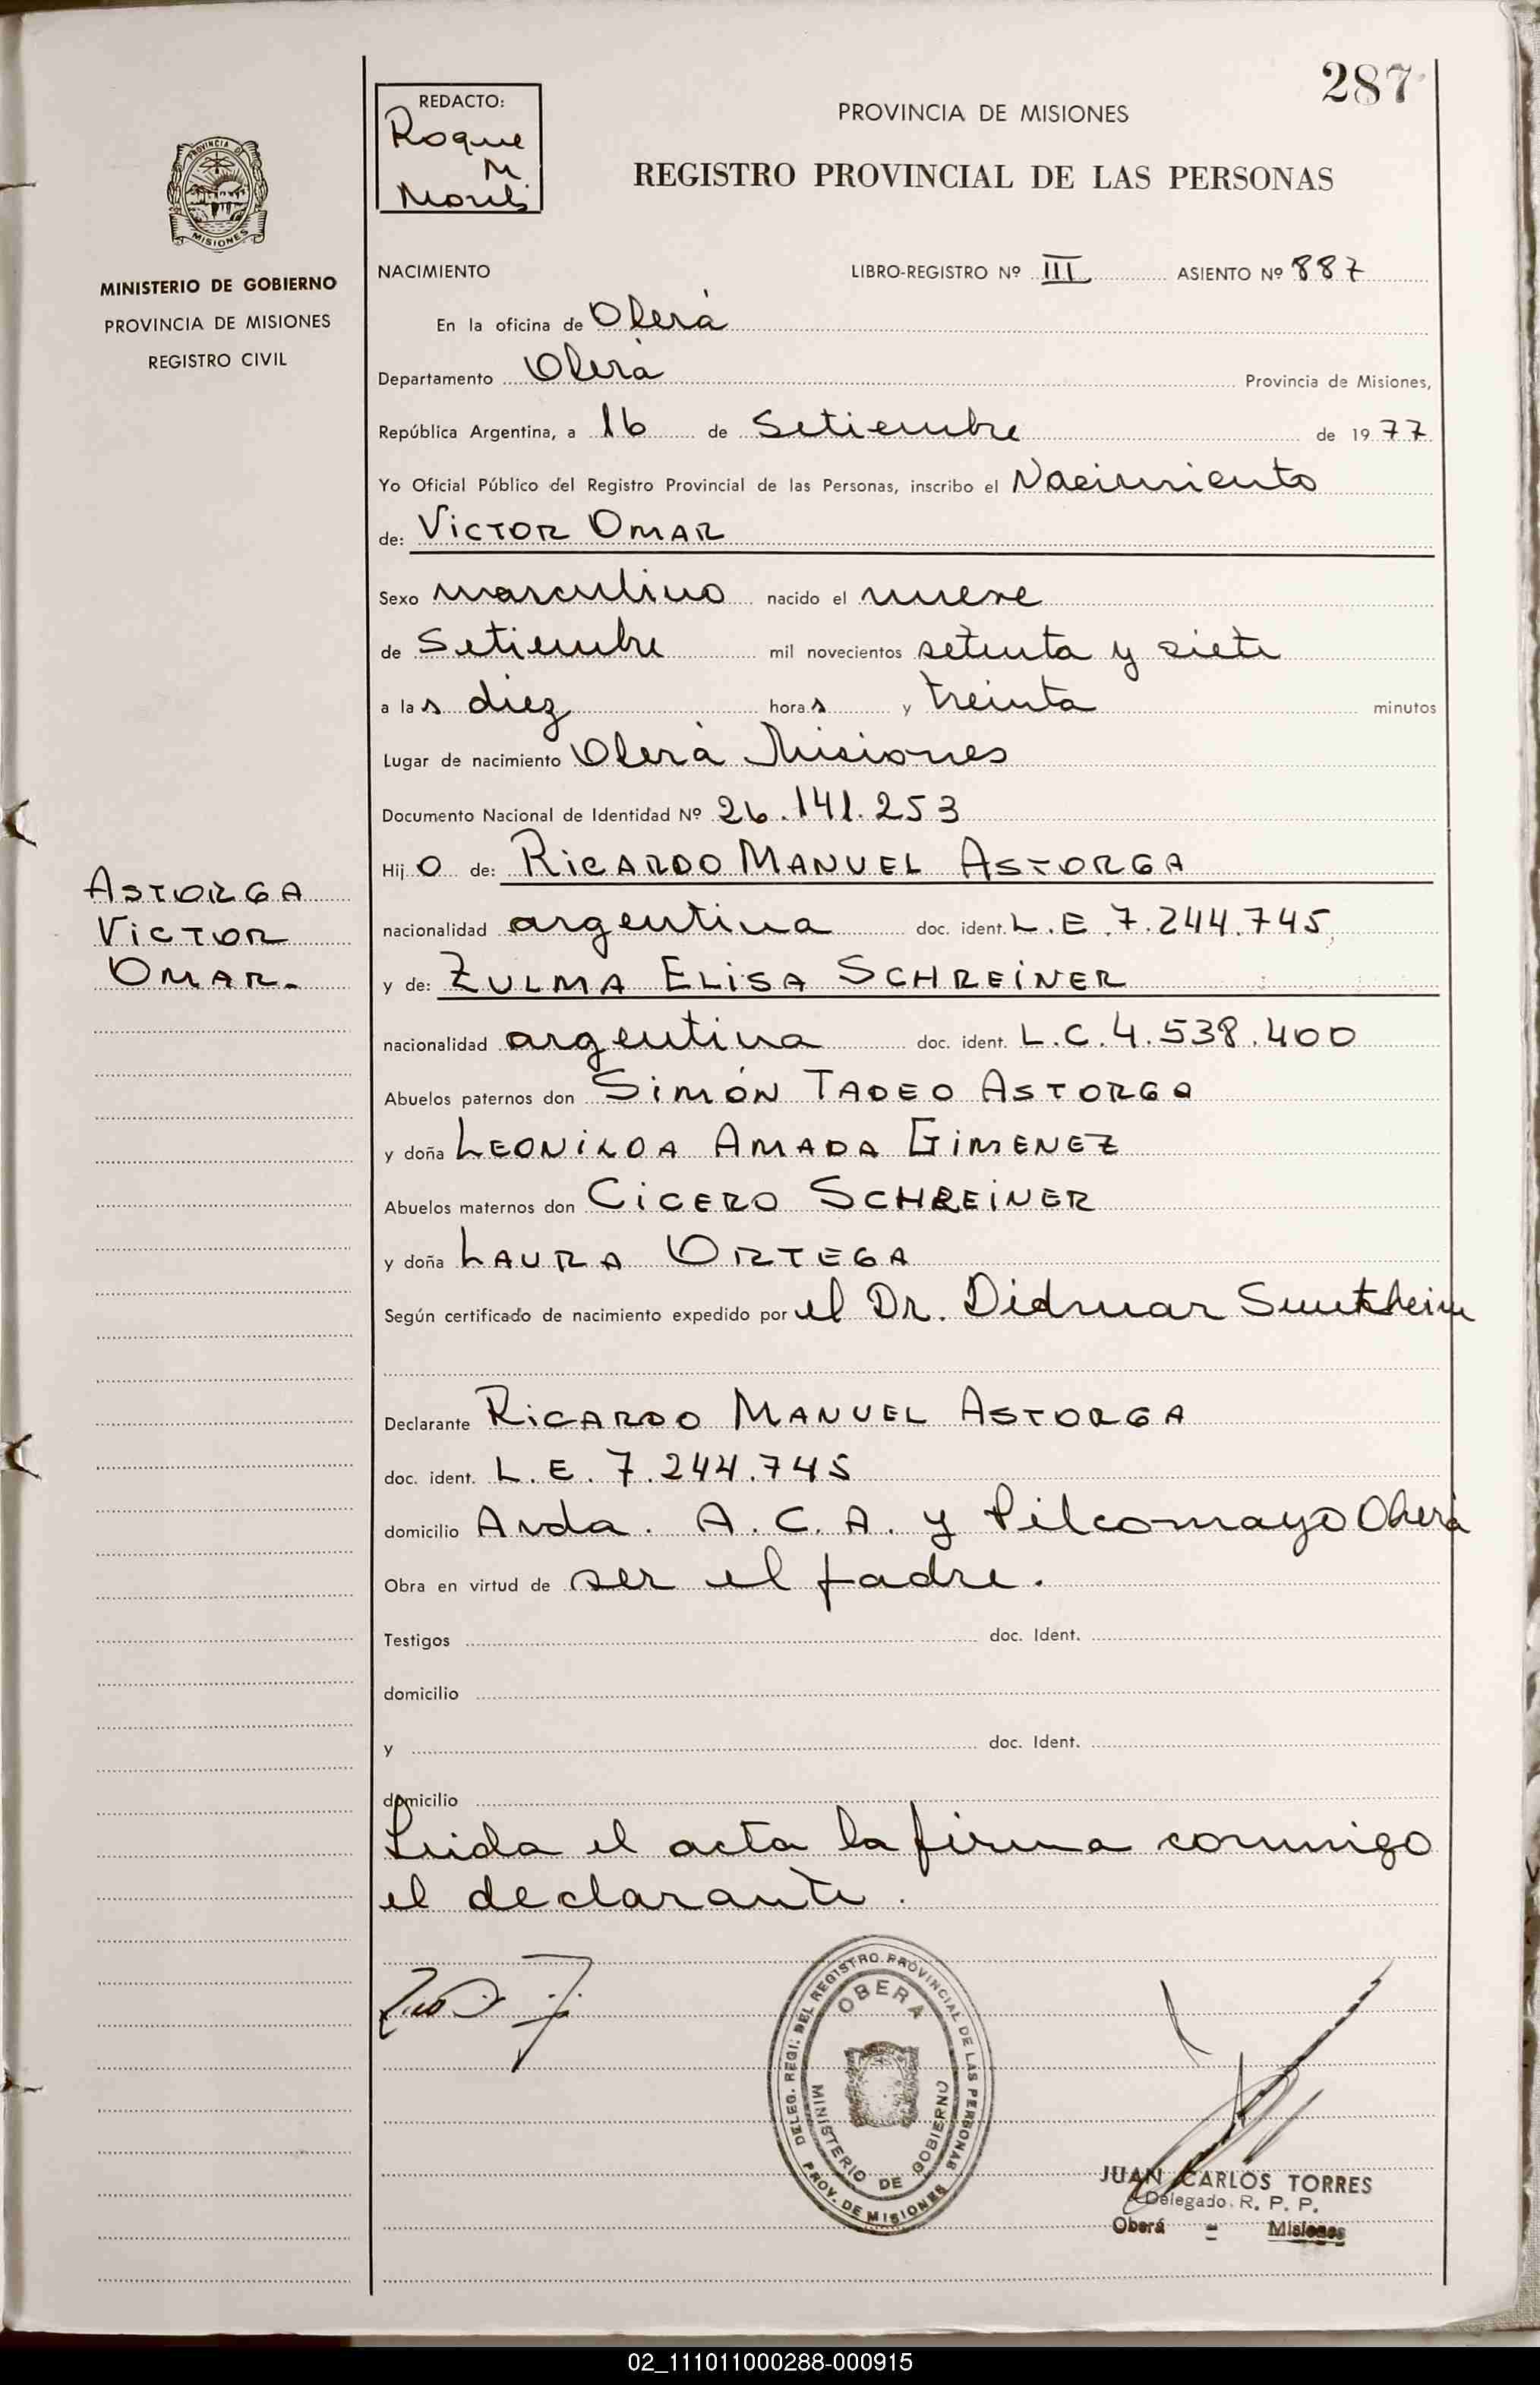 287
REDACTO:
Roque
M.
PROVINCIA DE MISIONES
REGISTRO PROVINCIAL DE LAS PERSONAS
PROVINCIA DE
MISIONES
MINISTERIO DE GOBIERNO
PROVINCIA DE MISIONES
REGISTRO CIVIL
NACIMIENTO LIBRO-REGISTRO Nº III ASIENTO Nº 887
En la oficina de Oberá
Departamento Oberá Provincia de Misiones,
República Argentina, a 16 de Setiembre de 1977
Yo Oficial Público del Registro Provincial de las Personas, inscribo el Nacimiento
de: VICTOR OMAR
Sexo masculino nacido el nueve
de Setiembre mil novecientos setenta y siete
a las diez horas y treinta minutos
Lugar de nacimiento Oberá Misiones
Documento Nacional de Identidad Nº 26.141.253
Hijo de: RICARDO MANUEL ASTORGA
ASTORGA
VICTOR
OMAR.
nacionalidad argentina doc. ident. L.E.7.244.745
y de: ZULMA ELISA SCHREINER
nacionalidad argentina doc. ident. L.C.4.538.400
Abuelos paternos don SIMÓN TADEO ASTORGA
y doña LEONILDA AMADA GIMENEZ
Abuelos maternos don CICERO SCHREINER
y doña LAURA ORTEGA
Según certificado de nacimiento expedido por el Dr. Didmar
Declarante RICARDO MANUEL ASTORGA
doc. ident. L.E. 7.244.745
domicilio Avda. A.C.A. y Pilcomayo Oberá
Obra en virtud de ser el padre.
Testigos doc. Ident.
domicilio
y doc. Ident.
domicilio
Leida el acta la firma conmigo
el declarante.
DELEG. REGI. DEL REGISTRO PROVINCIAL DE LAS PERSONAS
OBERA
MINISTERIO DE GOBIERNO
PROV. DE MISIONES
JUAN CARLOS TORRES
Delegado R. P. P.
Oberá - Misiones
02_111011000288-000915